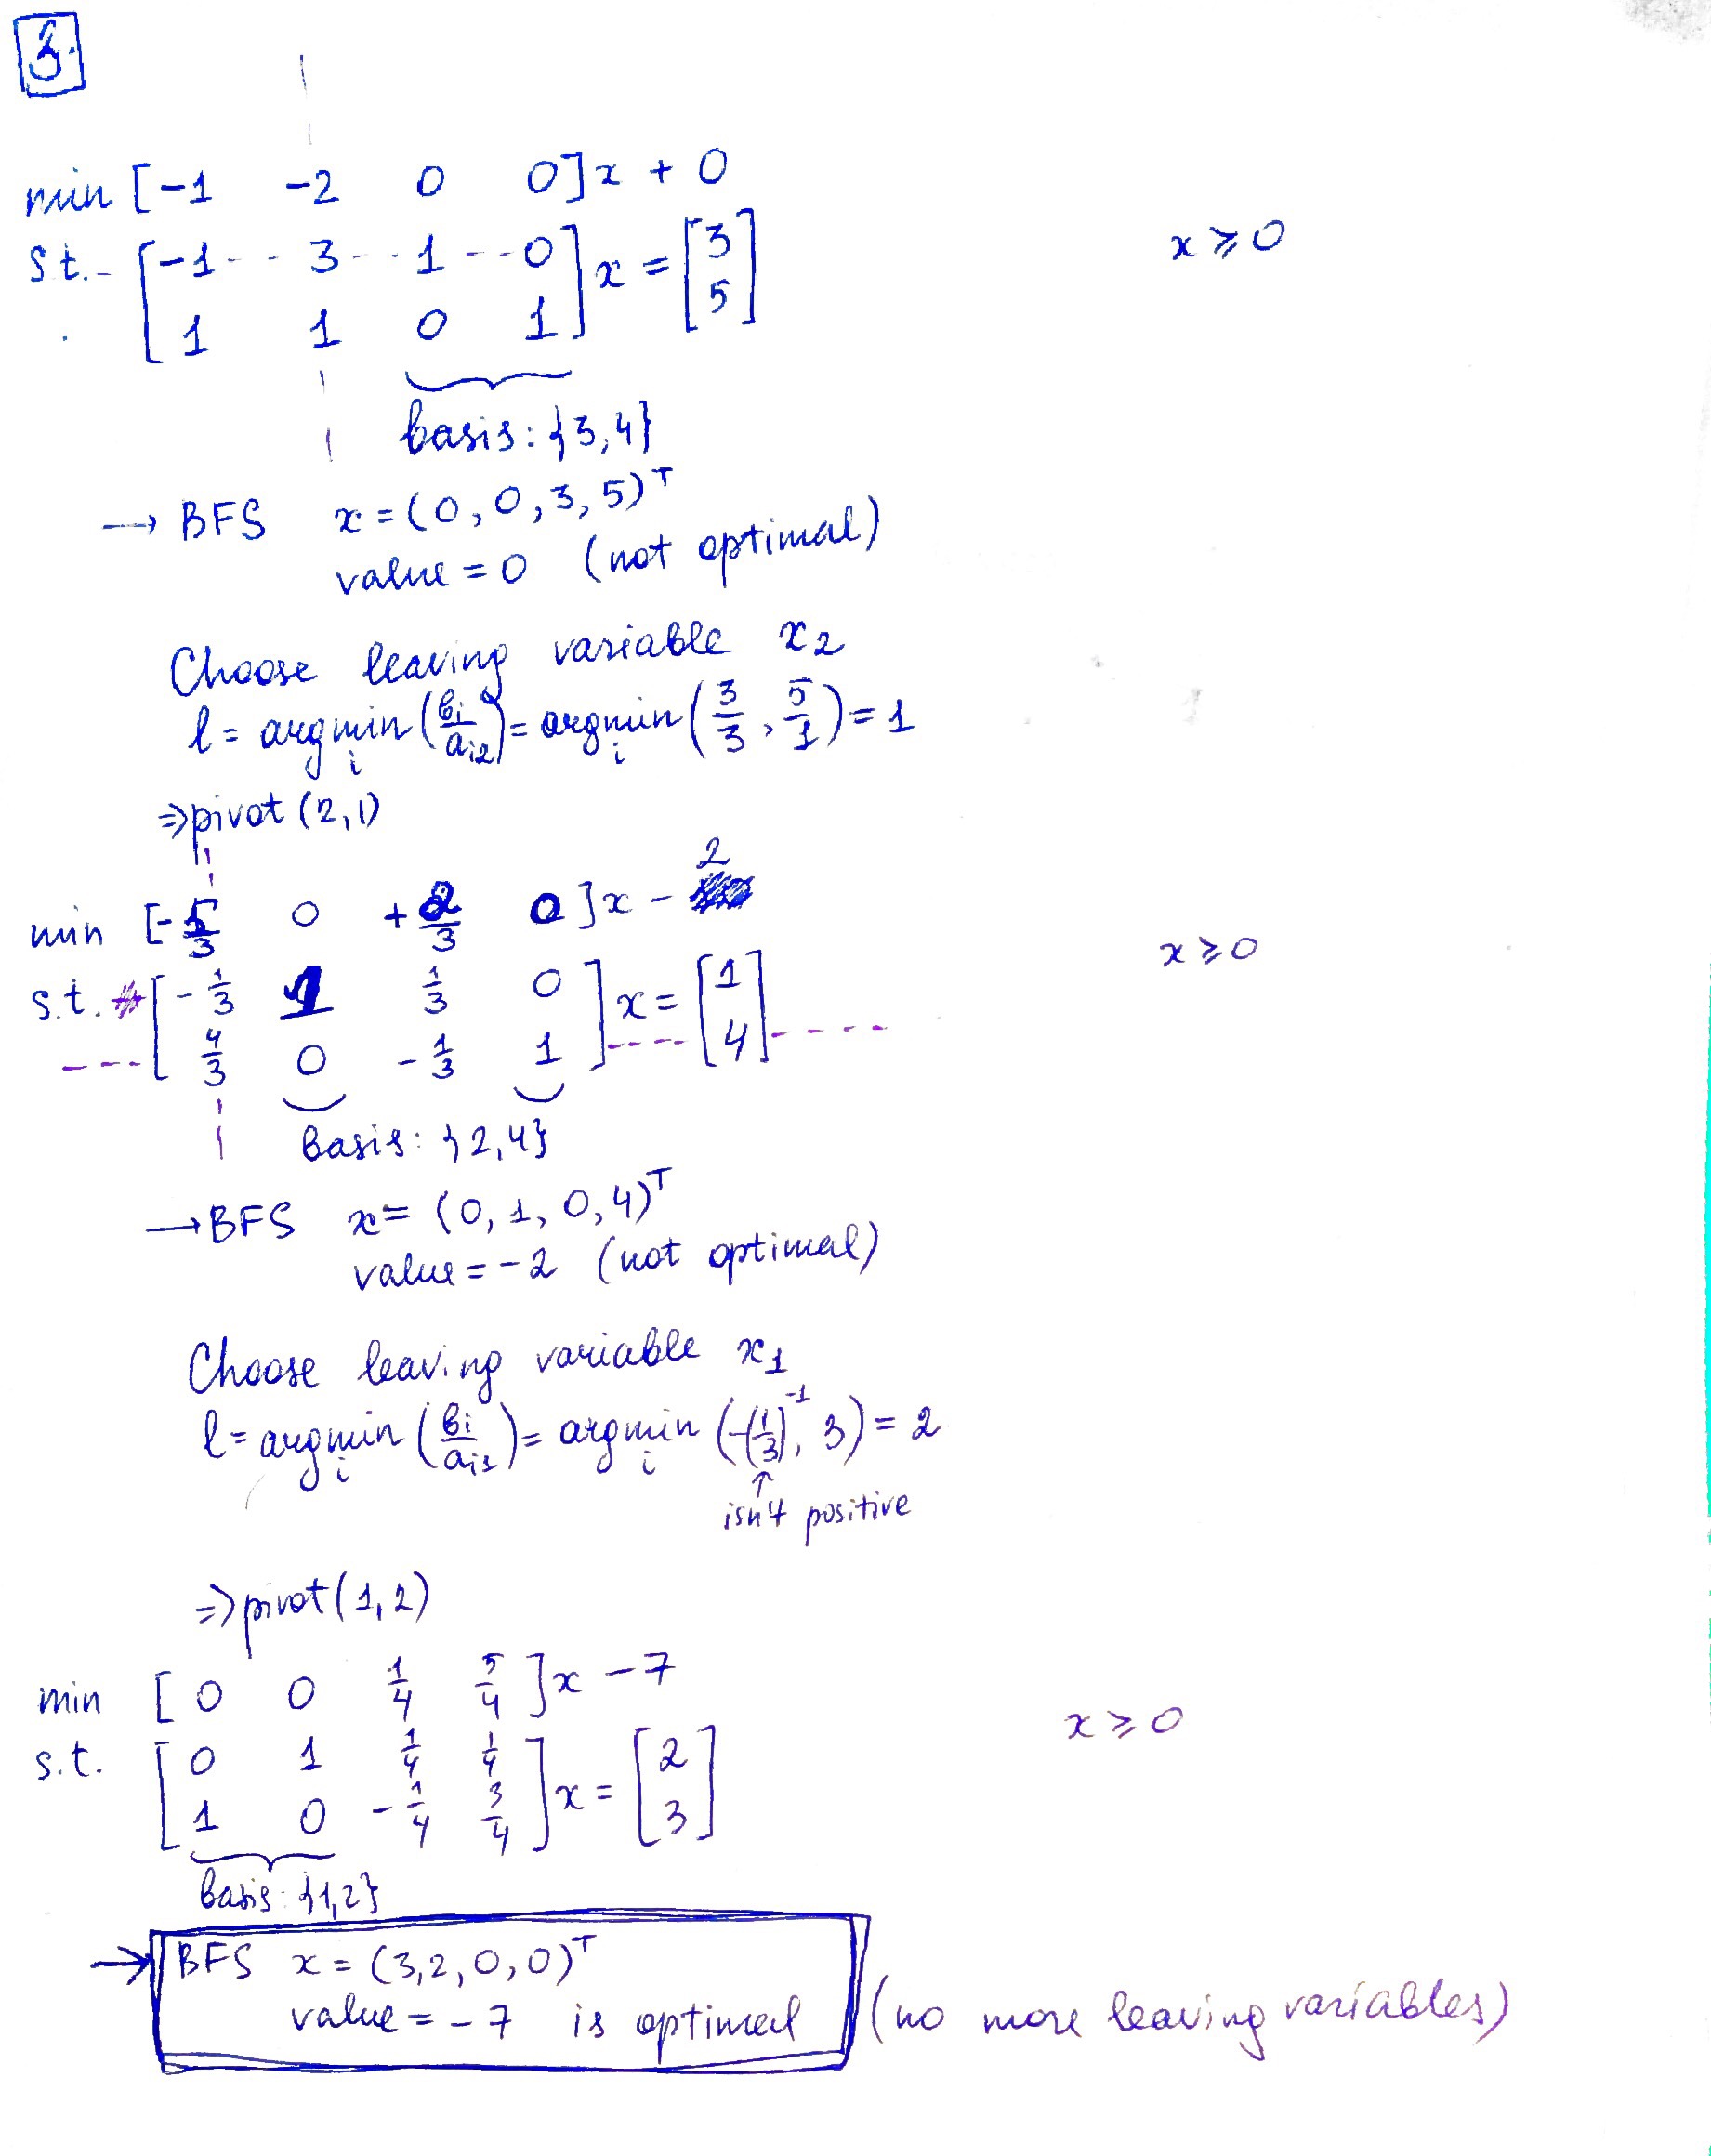 3.
min [-1 -2 0 0]x + 0
s.t. [-1 3 1 0] x = [3] x ⩾ 0
[1 1 0 1] [5]
basis: {3,4}
→ BFS x = (0, 0, 3, 5)ᵀ
value = 0 (not optimal)
Choose leaving variable x₂
l = argminᵢ (bᵢ/aᵢ₂) = argminᵢ (3/3, 5/1) = 1
⇒ pivot (2,1)
min [-5/3 0 +2/3 0]x - 2
s.t. [-1/3 1 1/3 0] x = [1] x ⩾ 0
[4/3 0 -1/3 1] [4]
Basis: {2,4}
→ BFS x = (0, 1, 0, 4)ᵀ
value = -2 (not optimal)
Choose leaving variable x₁
l = argminᵢ (bᵢ/aᵢ₁) = argminᵢ (-(1/3)⁻¹, 3) = 2
↑
isn't positive
⇒ pivot (1,2)
min [0 0 1/4 5/4]x - 7
s.t. [0 1 1/4 1/4] x = [2] x ⩾ 0
[1 0 -1/4 3/4] [3]
basis: {1,2}
→ BFS x = (3,2,0,0)ᵀ
value = -7 is optimal (no more leaving variables)